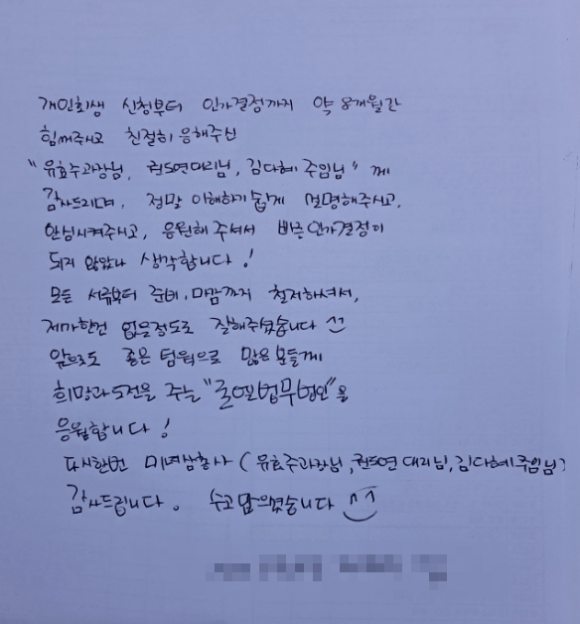 개인회생 신청부터 인가결정까지 약 8개월간
힘써주시고 친절히 응해주신
"유효주과장님, 권도연대리님, 김다혜 주임님" 께
감사드리며, 정말 이해하기 쉽게 설명해주시고,
안심시켜주시고, 응원해 주셔서 빠른 인가결정이
되지 않았나 생각합니다!
모든 서류부터 준비, 마감까지 철저하셔서,
제가한건 없을정도로 잘해주셨습니다 ^^
앞으로도 좋은 팀웍으로 많은 분들께
희망과 도전을 주는 "로앤법무법인"을
응원합니다!
다시한번 미녀삼총사 (유효주과장님, 권도연 대리님, 김다혜 주임님)
감사드립니다. 수고 많으셨습니다 ^^